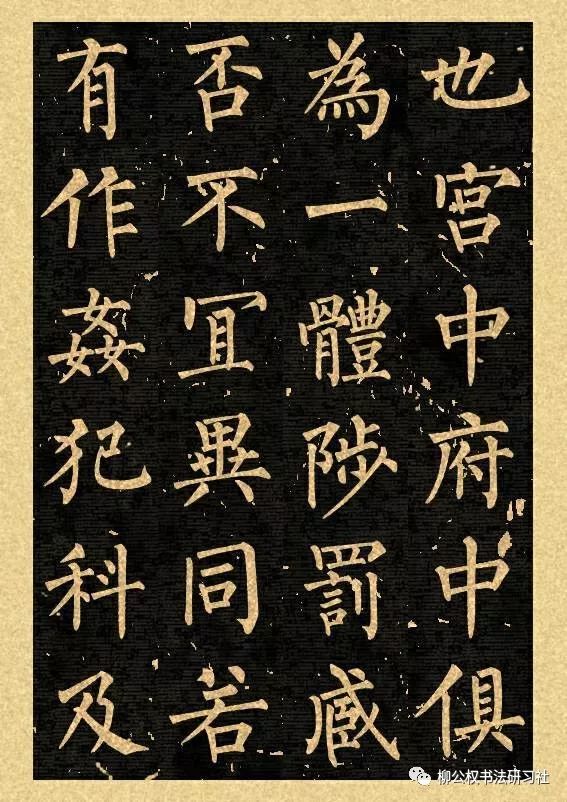 也宮中府中俱
為一體陟罰臧
否不冝異同若
有作姦犯科及
柳公权书法研习社